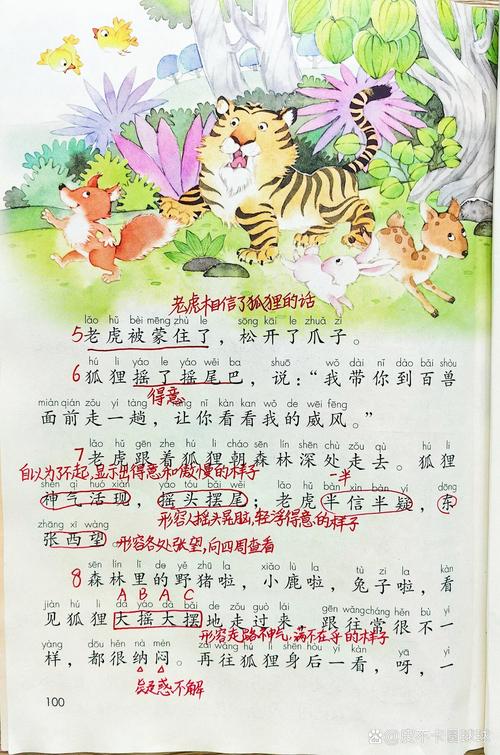 老虎相信了狐狸的话
lǎo hǔ bèi mēng zhù le sōng kāi le zhuǎ zi
5老虎被蒙住了，松开了爪子。
hú li yáo le yáo wěi ba shuō wǒ dài nǐ dào bǎi shòu
6狐狸摇了摇尾巴，说：“我带你到百兽
得意
miàn qián zǒu yí tàng ràng nǐ kàn kan wǒ de wēi fēng
面前走一趟，让你看看我的威风。”
lǎo hǔ gēn zhe hú li cháo sēn lín shēn chù zǒu qù hú li
7老虎跟着狐狸朝森林深处走去。狐狸
自以为了不起,显示出得意和傲慢的样子
一半
shén qì huó xiàn yáo tóu bǎi wěi lǎo hǔ bàn xìn bàn yí dōng
神气活现，摇头摆尾；老虎半信半疑，东
形容人摇头晃脑,轻浮得意的样子
zhāng xī wàng
张西望。 形容各处张望,向四周查看
sēn lín li de yě zhū la xiǎo lù la tù zi la kàn
8森林里的野猪啦，小鹿啦，兔子啦，看
A B A C
jiàn hú li dà yáo dà bǎi de zǒu guò lái gēn wǎng cháng hěn bù yí
见狐狸大摇大摆地走过来，跟往常很不一
形容走路神气,满不在乎的样子
yàng dōu hěn nà mèn zài wǎng hú li shēn hòu yí kàn ya yì
样，都很纳闷。再往狐狸身后一看，呀，一
疑惑不解
100